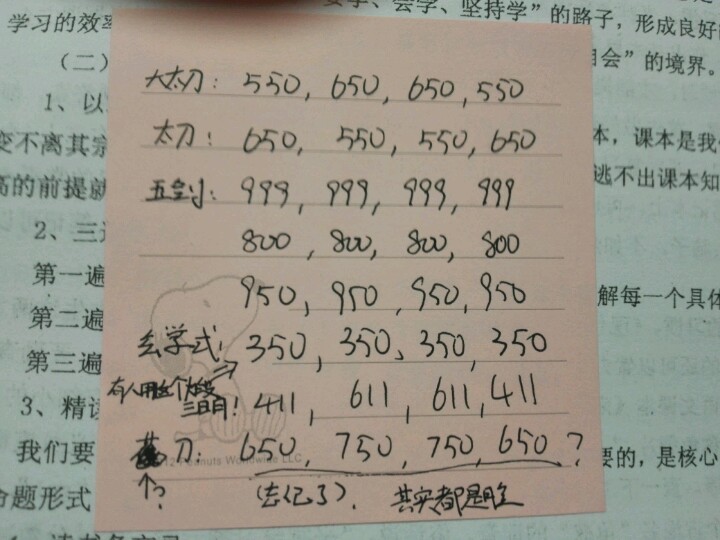 学习的效率
会学、坚持学”的路子，形成良好
（二）
自会”的境界。
大太刀：550, 650, 650, 550
1、以
太刀：650, 550, 550, 650
变不离其宗
本，课本是我
高的前提就
逃不出课本知
五虎：999, 999, 999, 999
2、三遍
800, 800, 800, 800
第一遍
950, 950, 950, 950
解每一个具体
第二遍
350, 350, 350, 350
第三遍
有人用这个
三日月！411, 611, 611, 411
3、精读
刀：650, 750, 750, 650？
我们要
要的，是核心
2 Peanuts Worldwide LLC
个？
命题形式
（忘了）. 其实都是